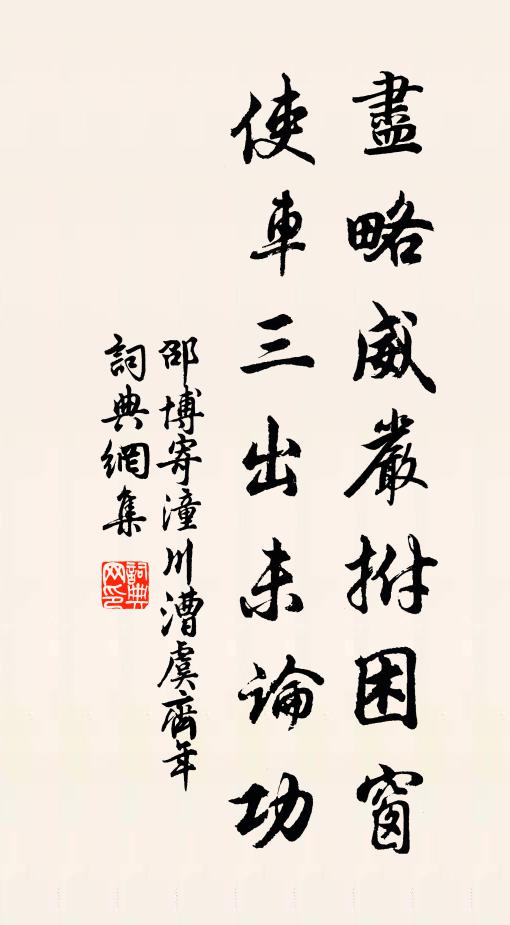 盡略威嚴拊困窗
使車三出未論功
邵博寄潼川漕虞齊年
詞典網集
詞典网印